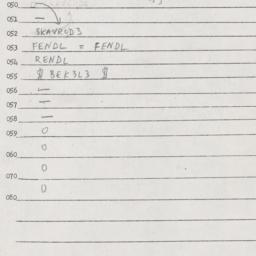 050
051 —
052 SKAVROD3
053 FENDL = FENDL
054 RENDL
055 $ BEK3L3 $
056 —
057 —
058 —
059 0
0
060 0
070 0
080